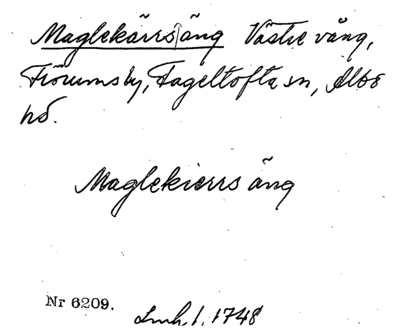 Maglekärrs|äng Västre vång,
Frörums by, Fågeltofta sn, Albo
hd.
Maglekierrs äng
Nr 6209.
Lmh. 1. 1748